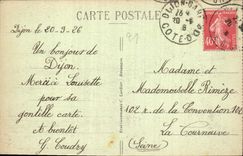 CARTE POSTALE
DIJON-GARE
COTE-D'OR
Dijon le 20.9.26
Un bonjour de
Dijon.
Merci Lousette
pour sa
gentille carte.
A bientôt
G. Coudry
Madame et
Mademoiselle Rimèze
107 r. de la Convention 107
La Courneuve
(Seine)